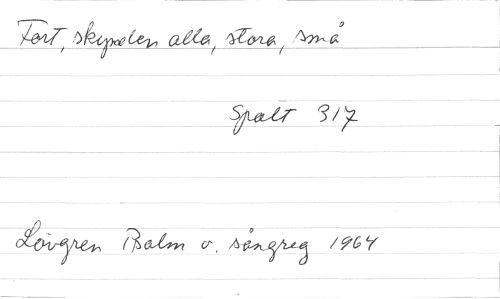 Fort, skynden alla, stora, små
Spalt 317
Lövgren Psalm o. sångreg 1964